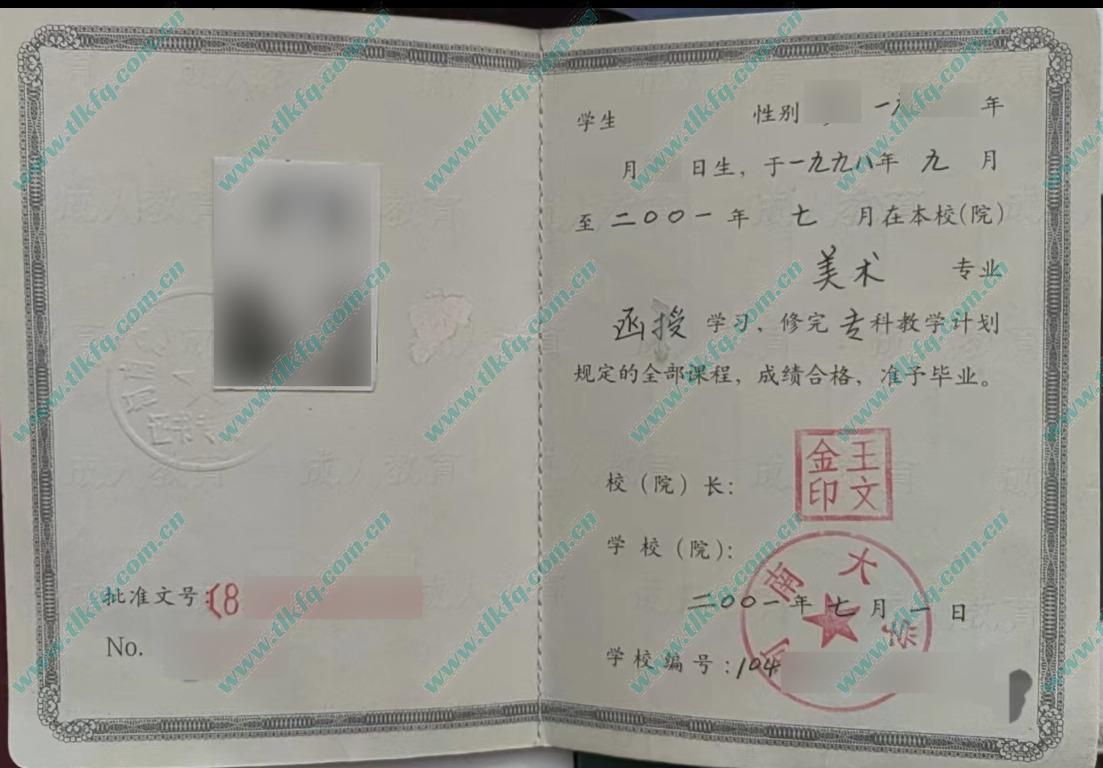 批准文号:(8
No.
证书专
学生 性别 一九 年
月 日生，于一九九八年 九 月
至 二〇〇一 年 七 月在本校(院)
美术 专业
函授 学习，修完 专科教学计划
规定的全部课程，成绩合格，准予毕业。
校（院）长：
王文金印
学 校（院）：
河南大学
二〇〇一年 七月 一 日
学校编号：104
成人教育
www.tlkfq.com.cn